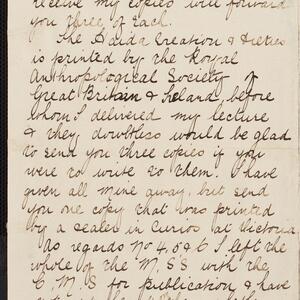 receive my copies will forward
you three of each.
The Haida Creation & Deities
is printed by the Royal
Anthropological Society of
Great Britain & Ireland, before
whom I delivered my lecture
& they doubtless would be glad
to send you three copies if you
were to write to them. I have
given all mine away, but send
you one copy that was printed
by a dealer in Curios at Victoria.
As regards No 4, 5 & 6 I left the
whole of the M.S.S with the
C.M.S for publication, & have